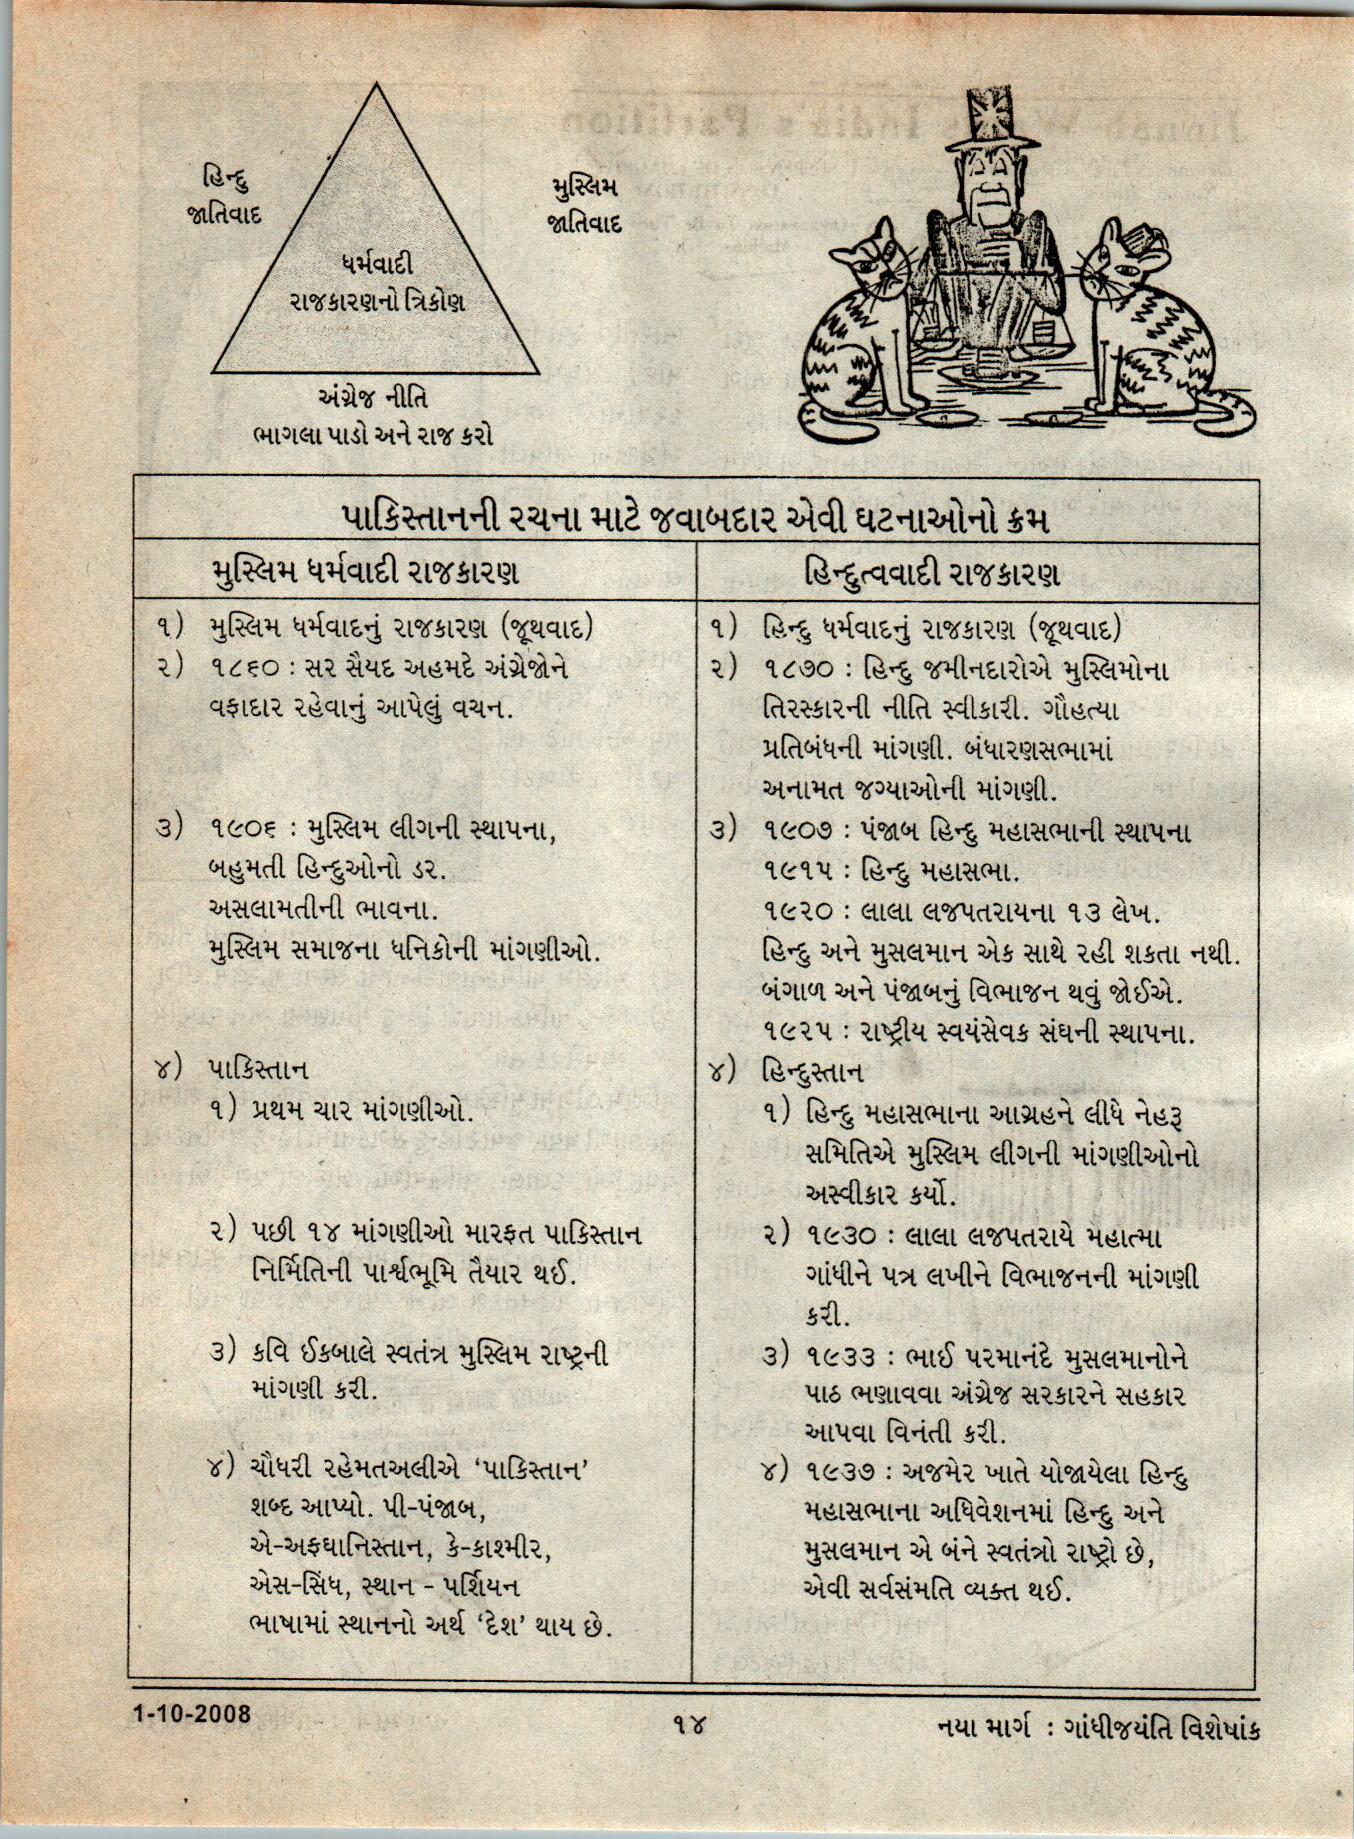 હિન્દુ
જાતિવાદ
મુસ્લિમ
જાતિવાદ
ધર્મવાદી
રાજકારણનો ત્રિકોણ
અંગ્રેજ નીતિ
ભાગલા પાડો અને રાજ કરો
પાકિસ્તાનની રચના માટે જવાબદાર એવી ઘટનાઓનો ક્રમ
મુસ્લિમ ધર્મવાદી રાજકારણ
૧) મુસ્લિમ ધર્મવાદનું રાજકારણ (જૂથવાદ)
૨) ૧૮૬૦ : સર સૈયદ અહમદે અંગ્રેજોને
વફાદાર રહેવાનું આપેલું વચન.
૩) ૧૯૦૬ : મુસ્લિમ લીગની સ્થાપના,
બહુમતી હિન્દુઓનો ડર.
અસલામતીની ભાવના.
મુસ્લિમ સમાજના ધનિકોની માંગણીઓ.
૪) પાકિસ્તાન
૧) પ્રથમ ચાર માંગણીઓ.
૨) પછી ૧૪ માંગણીઓ મારફત પાકિસ્તાન
નિર્મિતિની પાર્શ્વભૂમિ તૈયાર થઈ.
૩) કવિ ઈકબાલે સ્વતંત્ર મુસ્લિમ રાષ્ટ્રની
માંગણી કરી.
૪) ચૌધરી રહેમતઅલીએ ‘પાકિસ્તાન’
શબ્દ આપ્યો. પી-પંજાબ,
એ-અફઘાનિસ્તાન, કે-કાશ્મીર,
એસ-સિંધ, સ્થાન - પર્શિયન
ભાષામાં સ્થાનનો અર્થ ‘દેશ’ થાય છે.
હિન્દુત્વવાદી રાજકારણ
૧) હિન્દુ ધર્મવાદનું રાજકારણ (જૂથવાદ)
૨) ૧૮૭૦ : હિન્દુ જમીનદારોએ મુસ્લિમોના
તિરસ્કારની નીતિ સ્વીકારી. ગૌહત્યા
પ્રતિબંધની માંગણી. બંધારણસભામાં
અનામત જગ્યાઓની માંગણી.
૩) ૧૯૦૭ : પંજાબ હિન્દુ મહાસભાની સ્થાપના
૧૯૧૫ : હિન્દુ મહાસભા.
૧૯૨૦ : લાલા લજપતરાયના ૧૩ લેખ.
હિન્દુ અને મુસલમાન એક સાથે રહી શકતા નથી.
બંગાળ અને પંજાબનું વિભાજન થવું જોઈએ.
૧૯૨૫ : રાષ્ટ્રીય સ્વયંસેવક સંઘની સ્થાપના.
૪) હિન્દુસ્તાન
૧) હિન્દુ મહાસભાના આગ્રહને લીધે નેહરૂ
સમિતિએ મુસ્લિમ લીગની માંગણીઓનો
અસ્વીકાર કર્યો.
૨) ૧૯૩૦ : લાલા લજપતરાયે મહાત્મા
ગાંધીને પત્ર લખીને વિભાજનની માંગણી
કરી.
૩) ૧૯૩૩ : ભાઈ પરમાનંદે મુસલમાનોને
પાઠ ભણાવવા અંગ્રેજ સરકારને સહકાર
આપવા વિનંતી કરી.
૪) ૧૯૩૭ : અજમેર ખાતે યોજાયેલા હિન્દુ
મહાસભાના અધિવેશનમાં હિન્દુ અને
મુસલમાન એ બંને સ્વતંત્રો રાષ્ટ્રો છે,
એવી સર્વસંમતિ વ્યક્ત થઈ.
1-10-2008
૧૪
નયા માર્ગ : ગાંધીજયંતિ વિશેષાંક